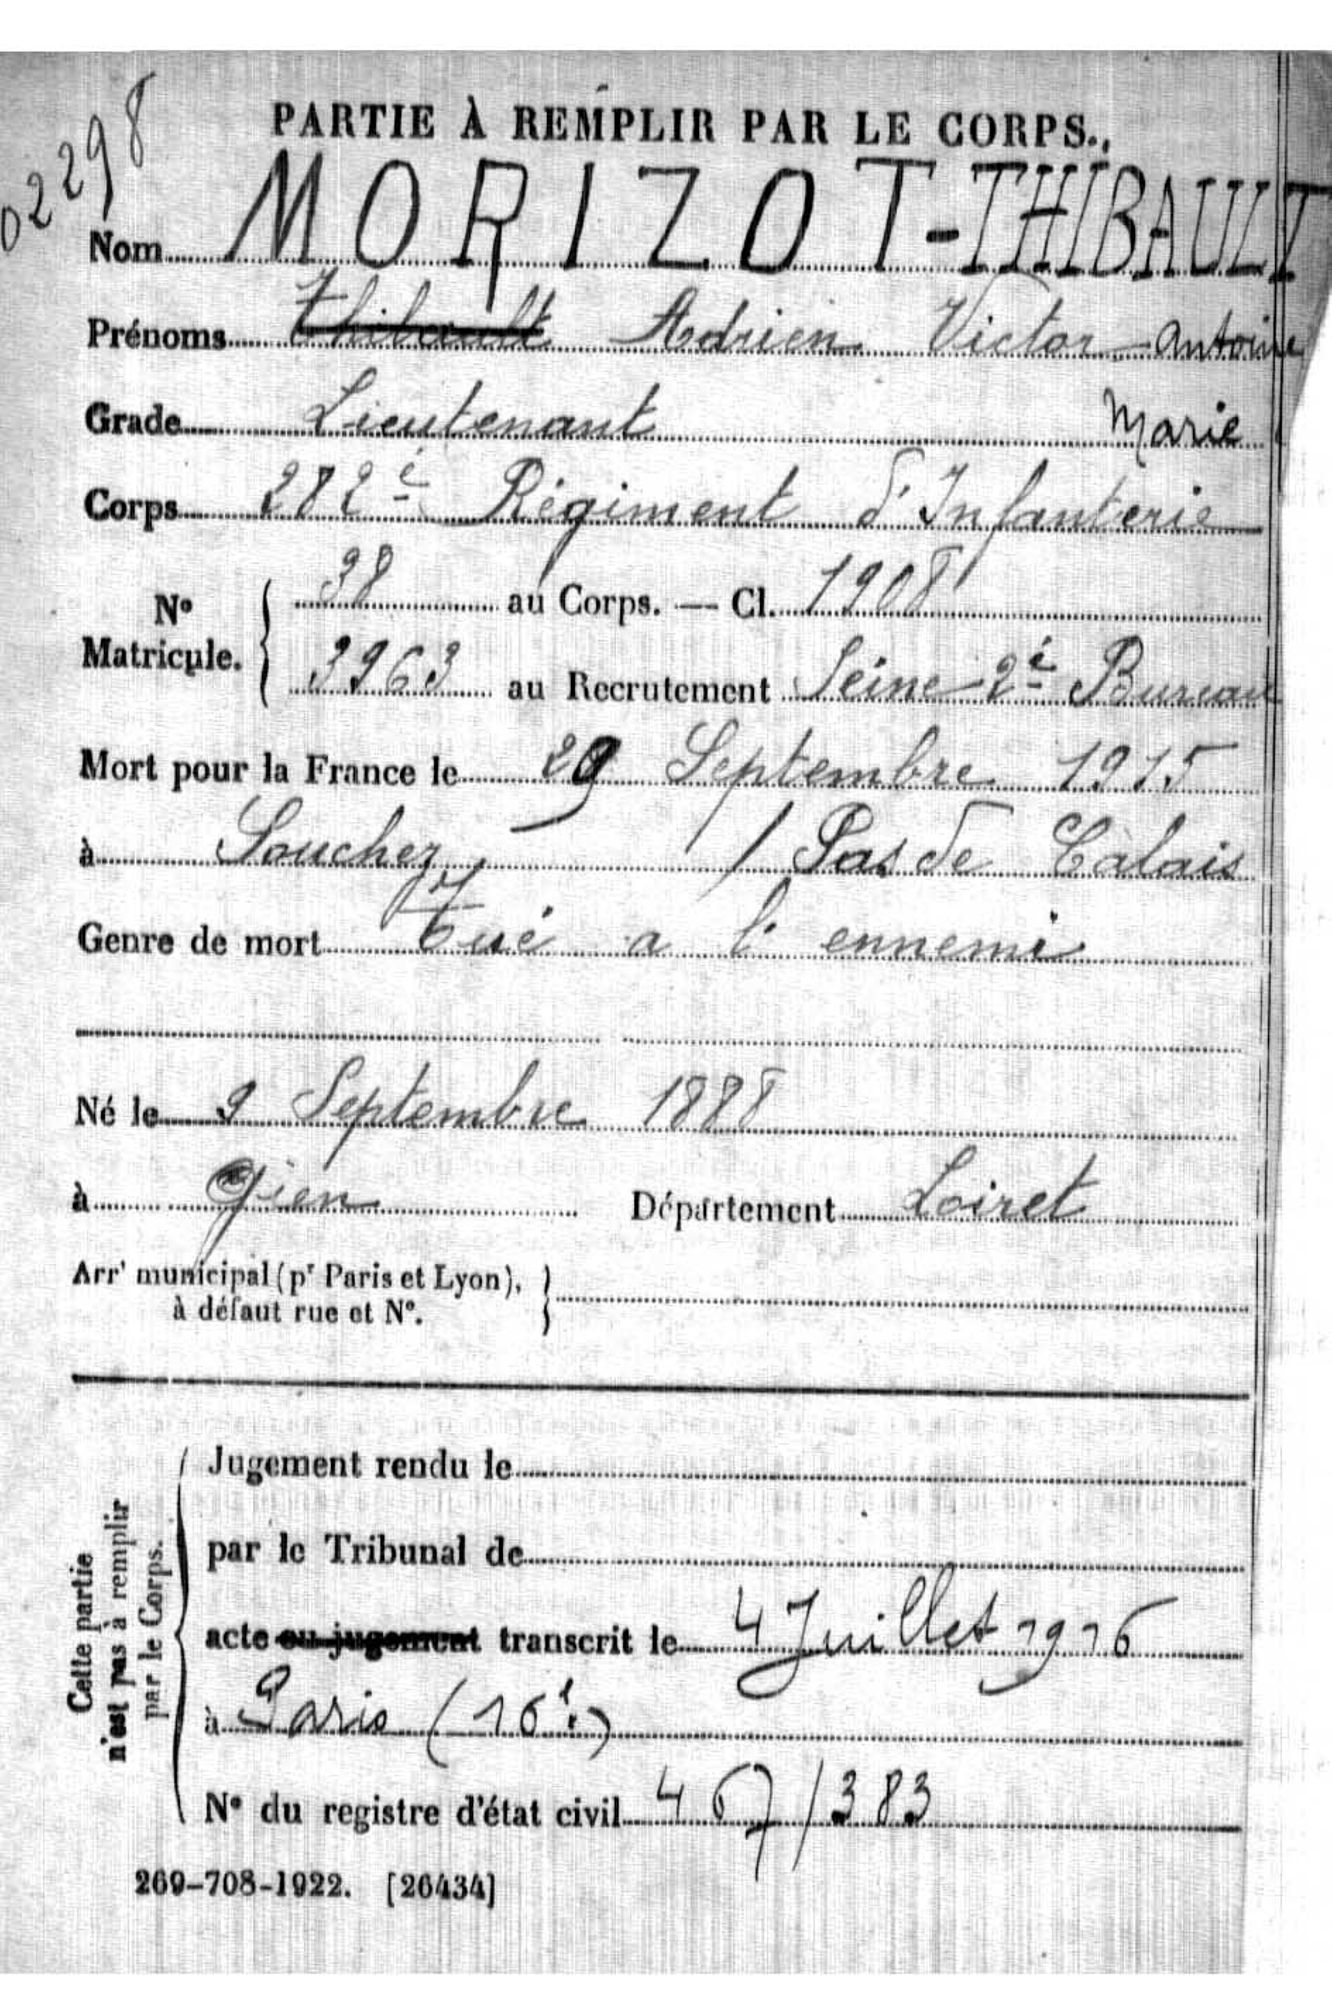 02298
PARTIE À REMPLIR PAR LE CORPS.
Nom MORIZOT-THIBAULT
Prénoms Thibault Adrien Victor Antoine
Marie
Grade Lieutenant
Corps 282è Régiment d'Infanterie
N° Matricule. { 38 au Corps. — Cl. 1908
3963 au Recrutement Seine 2è Bureau
Mort pour la France le 29 Septembre 1915
à Souchez / Pas de Calais
Genre de mort Tué a l'ennemi
Né le 9 Septembre 1888
à Gien Département Loiret
Arr' municipal (pr Paris et Lyon),
à défaut rue et N°.
Cette partie
n'est pas à remplir
par le Corps.
Jugement rendu le
par le Tribunal de
acte ou jugement transcrit le 4 Juillet 1916
à Paris (16è)
N° du registre d'état civil 467/383
269-708-1922. [26434]